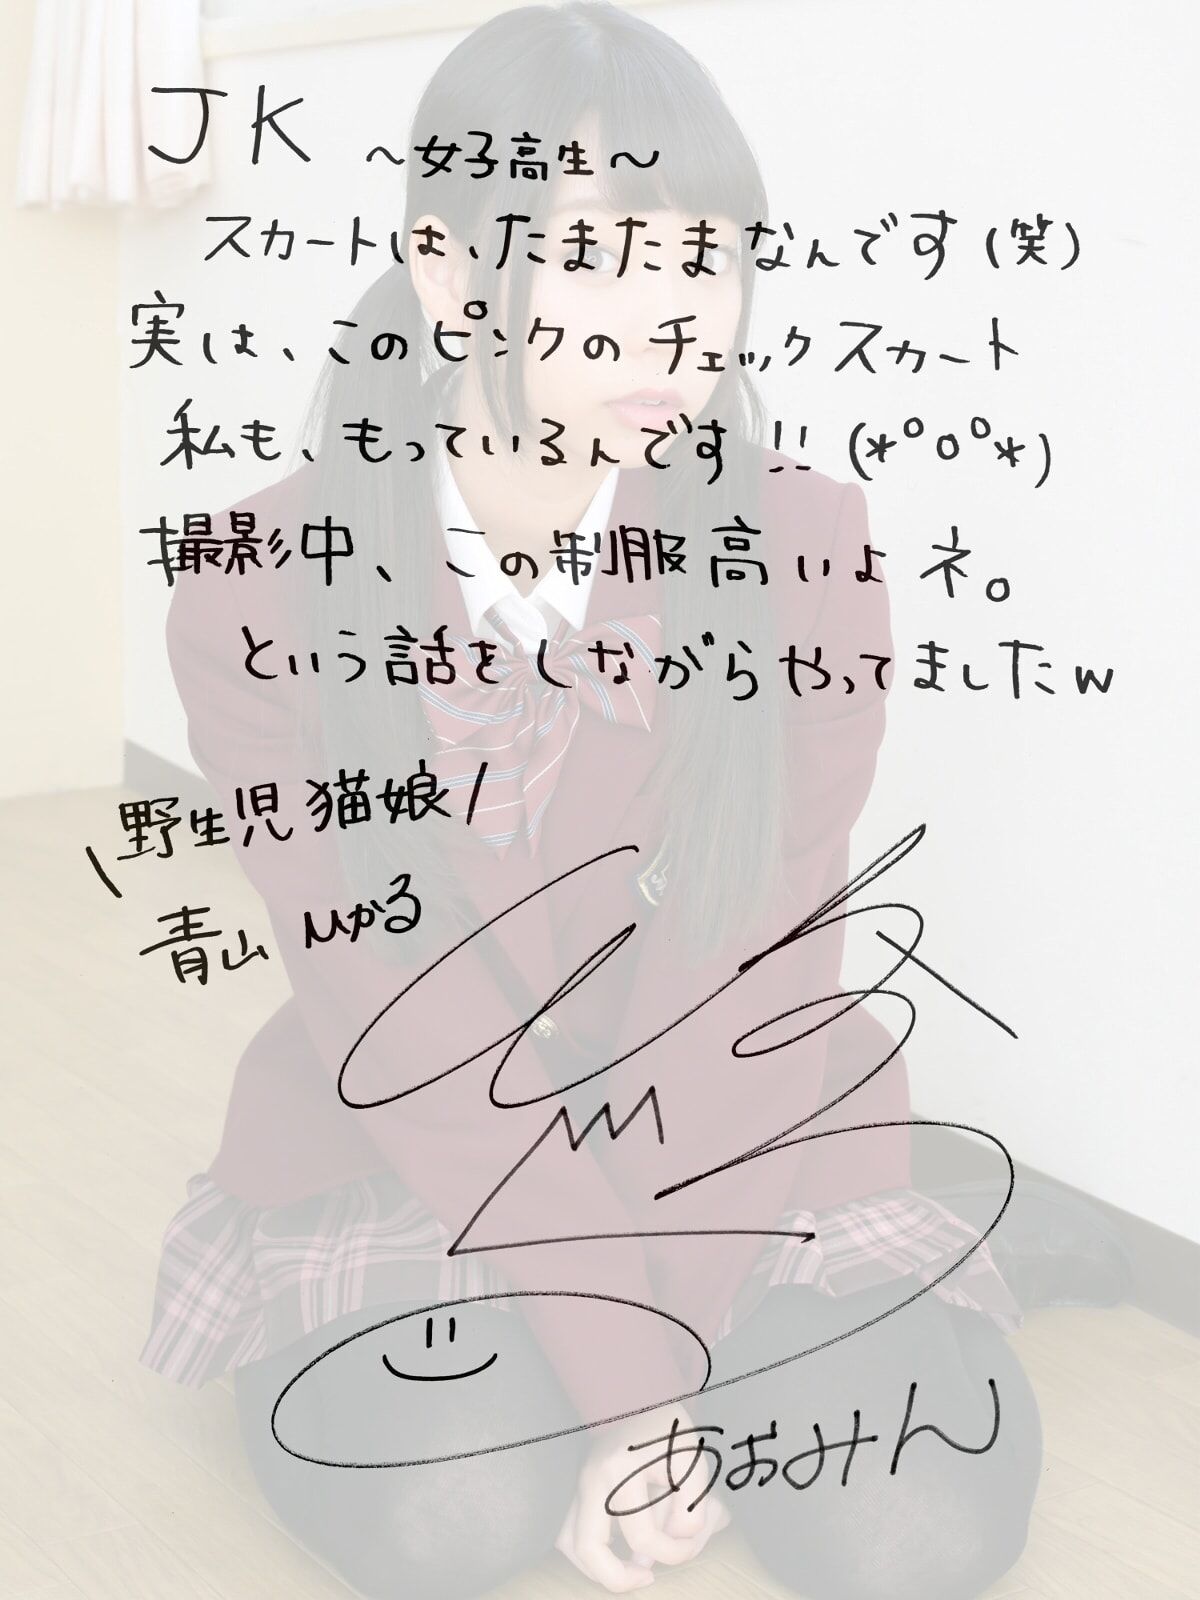 JK ～女子高生～
スカートは、たまたまなんです(笑)
実は、このピンクのチェックスカート
私も、もっているんです!!(*°o°*)
撮影中、この制服高いよネ。
という話をしながらやってましたw
\野生児猫娘/
青山ひかる
あおみん